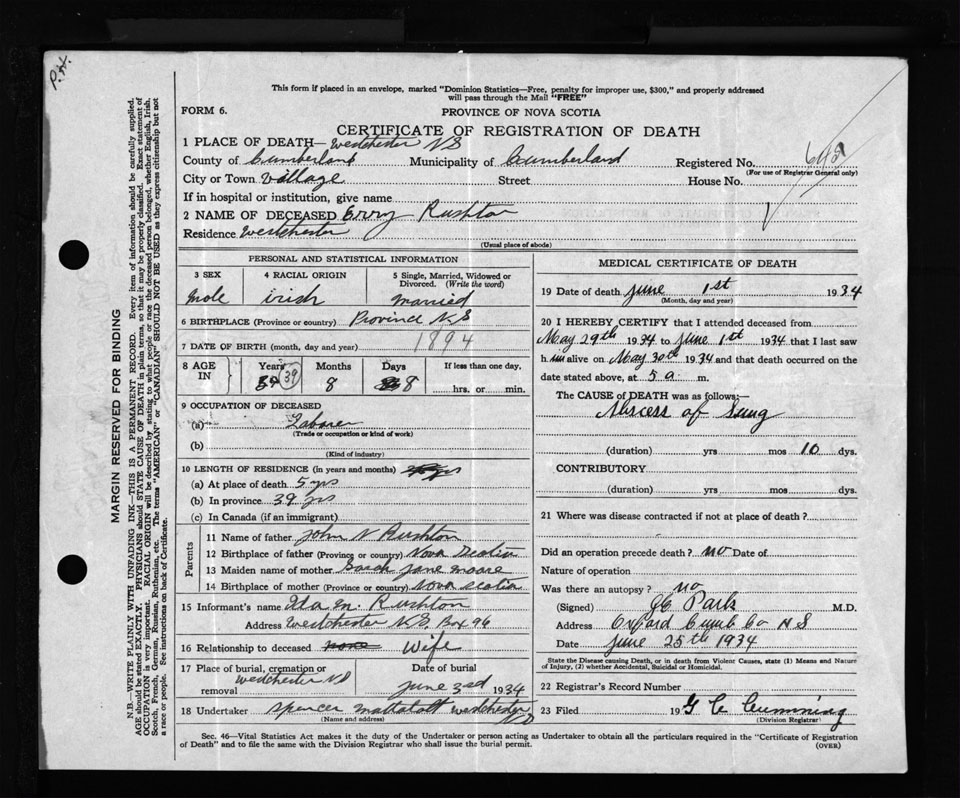 P.H.
This form if placed in an envelope, marked "Dominion Statistics—Free, penalty for improper use, $300," and properly addressed
will pass through the Mail "FREE"
FORM 6. PROVINCE OF NOVA SCOTIA
CERTIFICATE OF REGISTRATION OF DEATH
1 PLACE OF DEATH— Westchester NS
County of Cumberland Municipality of Cumberland Registered No. 698
(For use of Registrar General only)
City or Town Village Street House No.
If in hospital or institution, give name
2 NAME OF DECEASED Errry Rushton
Residence Westchester
(Usual place of abode)
PERSONAL AND STATISTICAL INFORMATION
3 SEX 4 RACIAL ORIGIN 5 Single, Married, Widowed or
Divorced. (Write the word)
male irish married
6 BIRTHPLACE (Province or country) Province N S
7 DATE OF BIRTH (month, day and year) 1894
8 AGE IN Years Months Days If less than one day,
39 8 8 hrs. or min.
9 OCCUPATION OF DECEASED
(a) Laborer
(Trade or occupation or kind of work)
(b)
(Kind of industry)
10 LENGTH OF RESIDENCE (in years and months) yrs
(a) At place of death 5 yrs
(b) In province 39 yrs
(c) In Canada (if an immigrant)
Parents
11 Name of father John N Rushton
12 Birthplace of father (Province or country) Nova Scotia
13 Maiden name of mother Sarah Jane Moore
14 Birthplace of mother (Province or country) Nova Scotia
15 Informant's name Ila M. Rushton
Address Westchester N.S. Box 96
16 Relationship to deceased none Wife
17 Place of burial, cremation or removal Date of burial
Westchester NS June 3rd 1934
18 Undertaker Spencer Mattatall Westchester NS
(Name and address)
MEDICAL CERTIFICATE OF DEATH
19 Date of death June 1st 1934
(Month, day and year)
20 I HEREBY CERTIFY that I attended deceased from
May 29th 1934 to June 1st 1934 that I last saw
h im alive on May 30th 1934 and that death occurred on
date stated above, at 5 a. m.
The CAUSE OF DEATH was as follows:—
Abscess of Lung
(duration) yrs mos 10 dys.
CONTRIBUTORY
(duration) yrs mos dys.
21 Where was disease contracted if not at place of death?
Did an operation precede death? no Date of
Nature of operation
Was there an autopsy? no
(Signed) Park M.D.
Address Oxford Cumb Co N S
Date June 25th 1934
State the Disease causing Death, or in death from Violent Causes, state (1) Means and Nature
of Injury, (2) whether Accidental, Suicidal or Homicidal.
22 Registrar's Record Number
23 Filed 19 G C Cumming
(Division Registrar)
Sec. 46—Vital Statistics Act makes it the duty of the Undertaker or person acting as Undertaker to obtain all the particulars required in the "Certificate of Registration
of Death" and to file the same with the Division Registrar who shall issue the burial permit. (OVER)
MARGIN RESERVED FOR BINDING
N.B.—WRITE PLAINLY WITH UNFADING INK—THIS IS A PERMANENT RECORD. Every item of information should be carefully supplied.
AGE should be stated EXACTLY. PHYSICIANS should STATE CAUSE OF DEATH in plain terms, so that it may be properly classified. Exact statement of
OCCUPATION is very important. RACIAL ORIGIN will be described by stating to what people or race the deceased person belonged, whether English, Irish,
Scotch, French, German, Russian, Ruthenian, etc. The terms "AMERICAN" or "CANADIAN" SHOULD NOT BE USED as they express citizenship but not
a race or people. See instructions on back of Certificate.